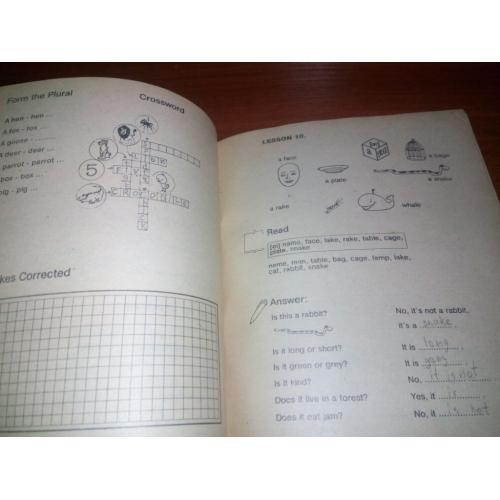 Form the Plural
Crossword
A hen - hen ...
A fox - fox ...
A goose - ..........
A deer - deer ...
parrot - parrot ...
box - box ...
pig - pig ...
5
kes Corrected
LESSON 10.
a face
a cage
a plate
a snake
a rake
whale
Read
[ei] name, face, lake, rake, table, cage,
plate, snake
name, man, table, bag, cage, lamp, lake,
cat, rabbit, snake
Answer:
Is this a rabbit? No, it's not a rabbit.
It's a snake
Is it long or short? It is long
Is it green or grey? It is
Is it kind? No, it is not
Does it live in a forest? Yes, it is
Does it eat jam? No, it is not